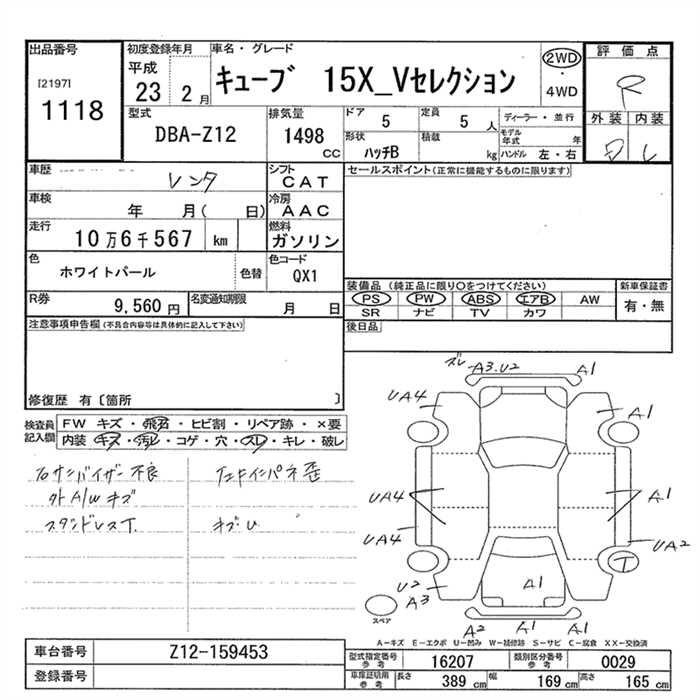 出品番号
[2197]
1118
初度登録年月
平成
23 2月
車名・グレード
キューブ 15X_Vセレクション
2WD
・
4WD
評価点
R
外装 内装
型式
DBA-Z12
排気量
1498
CC
ドア
5
定員
5人
形状
ハッチB
積載
kg
ディーラー・並行
モデル年式 年
ハンドル 左・右
車歴
レンタ
シフト
CAT
車検
年 月( 日)
冷房
AAC
走行
10万6千567 km
燃料
ガソリン
色
ホワイトパール
色替
色コード
QX1
R券
9,560円
名変通知期限
月 日
セールスポイント(正常に機能するものに限ります)
装備品 (純正品に限り○をつけてください)
PS PW ABS エアB AW
SR ナビ TV カワ
新車保証書
有・無
後日品
注意事項申告欄(不具合内容等は具体的に記入して下さい)
修復歴 有〔箇所 〕
検査員
記入欄
FW キズ・飛石・ヒビ割・リペア跡・×要
内装・キズ・汚レ・コゲ・穴・スレ・キレ・破レ
サンバイザー不良
外A/Wキズ
スタンドレスT.
キズU
ズレ
A3.U2
A1
UA4
A1
UA4
A1
UA4
UA2
T
U2
A3
A1
A2
A1
A1
スペア
A-キズ E-エクボ U-凹み W-補修跡 S-サビ C-腐食 XX-交換済
車台番号
Z12-159453
登録番号
型式指定番号
参考
16207
類別区分番号
参考
0029
車庫証明用
参考
長さ 389 cm
幅 169 cm
高さ 165 cm